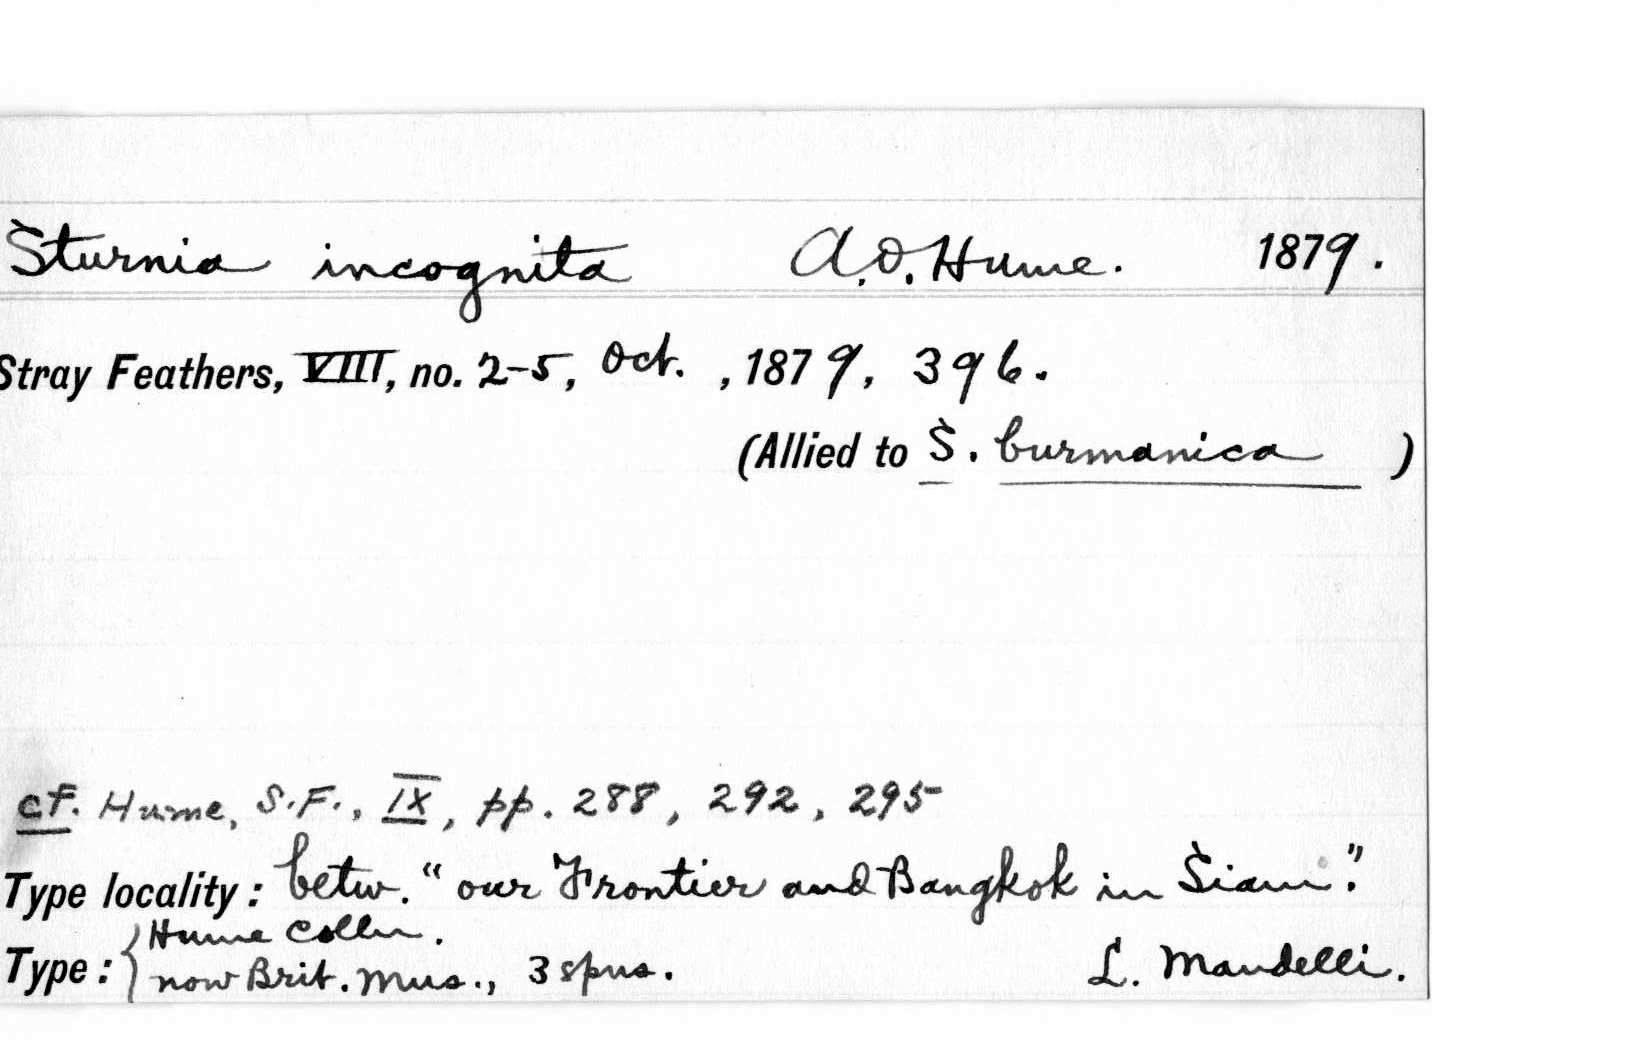 Sturnia incognita A.O. Hume. 1879.
Stray Feathers, VIII, no. 2-5, Oct., 1879, 396.
(Allied to S. burmanica )
cf. Hume, S.F., IX, pp. 288, 292, 295
Type locality: betw. "our Frontier and Bangkok in Siam."
Type: { Hume Colln.
now Brit. Mus., 3 spns. L. Mandelli.